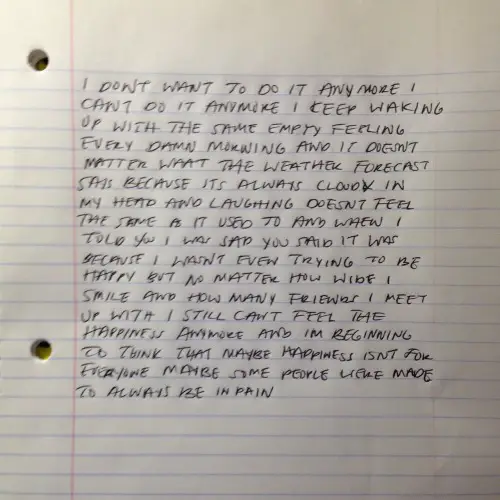 I DON'T WANT TO DO IT ANYMORE I
CAN'T DO IT ANYMORE I KEEP WAKING
UP WITH THE SAME EMPTY FEELING
EVERY DAMN MORNING AND IT DOESNT
MATTER WHAT THE WEATHER FORECAST
SAYS BECAUSE ITS ALWAYS CLOUDY IN
MY HEAD AND LAUGHING DOESNT FEEL
THE SAME AS IT USED TO AND WHEN I
TOLD YOU I WAS SAD YOU SAID IT WAS
BECAUSE I WASN'T EVEN TRYING TO BE
HAPPY BUT NO MATTER HOW WIDE I
SMILE AND HOW MANY FRIENDS I MEET
UP WITH I STILL CAN'T FEEL THE
HAPPINESS ANYMORE AND IM BEGINNING
TO THINK THAT MAYBE HAPPINESS ISNT FOR
EVERYONE MAYBE SOME PEOPLE WERE MADE
TO ALWAYS BE IN PAIN